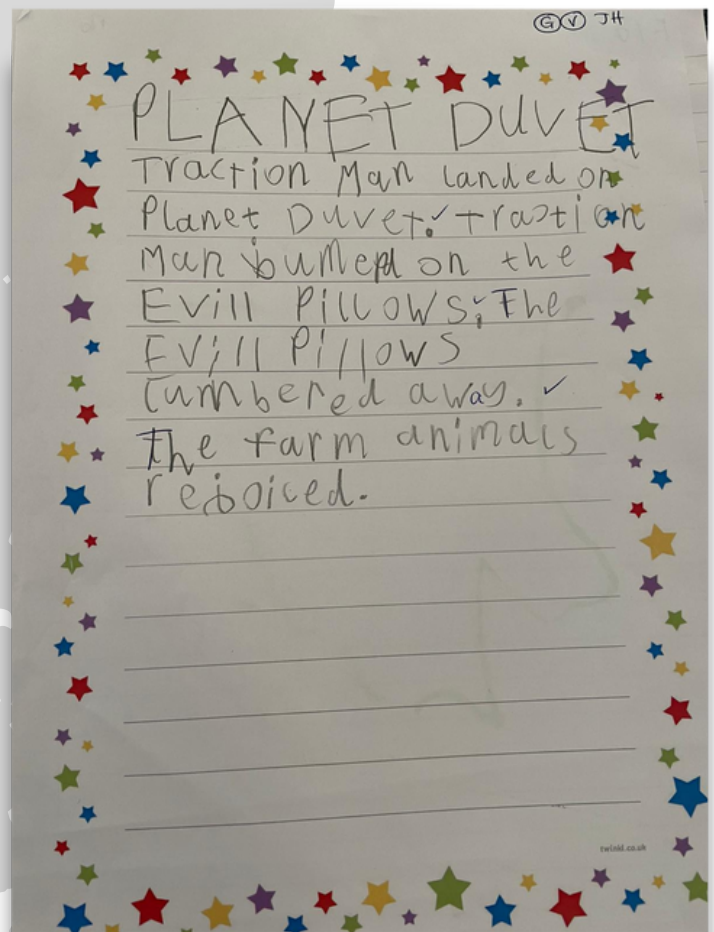 G V JH
PLANET DUVET
Traction Man landed on
Planet Duvet.✓ Traction
Man bumed on the
Evill Pillows.✓ The
Evill Pillows
lumbered away. ✓
The farm animals
rejoiced.
twinkl.co.uk